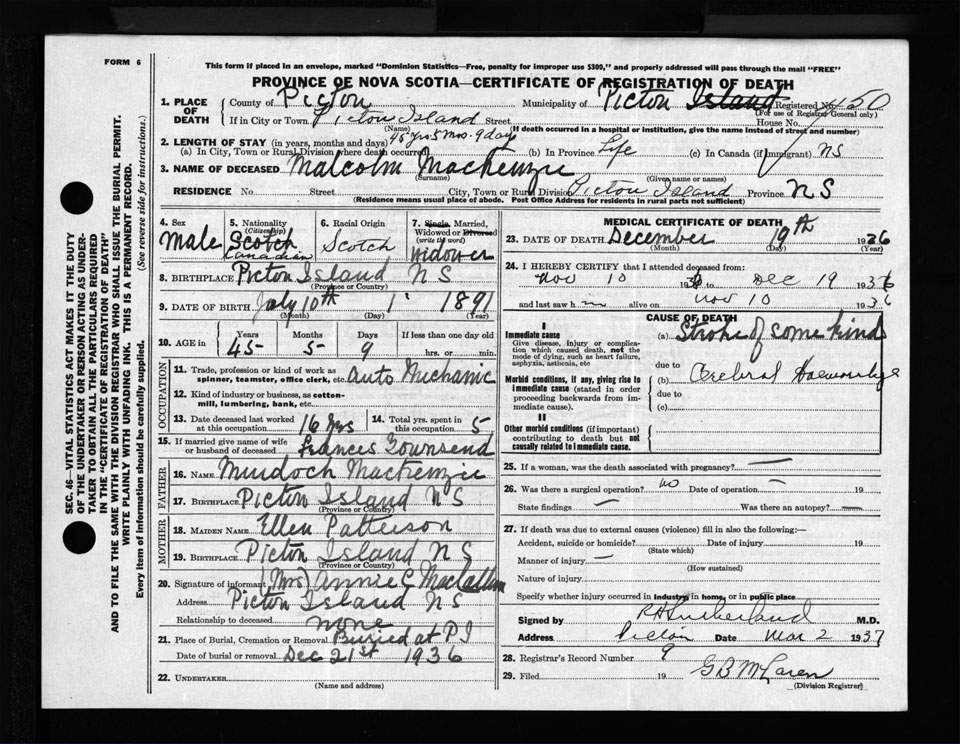 FORM 6
This form if placed in an envelope, marked "Dominion Statistics—Free, penalty for improper use $300," and properly addressed will pass through the mail "FREE"
PROVINCE OF NOVA SCOTIA—CERTIFICATE OF REGISTRATION OF DEATH
1. PLACE OF DEATH County of Pictou Municipality of Pictou Island Registered No. 450
(For use of Registrar General only)
If in City or Town Pictou Island Street House No.
(Name) (If death occurred in a hospital or institution, give the name instead of street and number)
2. LENGTH OF STAY (in years, months and days) 45 yrs 5 mos. 9 days
(a) In City, Town or Rural Division where death occurred (b) In Province Life (c) In Canada (if immigrant) NS
3. NAME OF DECEASED Malcolm Mackenzie
(Surname) (Given name or names)
RESIDENCE No. Street City, Town or Rural Division Pictou Island Province NS
(Residence means usual place of abode. Post Office Address for residents in rural parts not sufficient)
4. Sex Male
5. Nationality (Citizenship) Scotch Canadian
6. Racial Origin Scotch
7. Single, Married, Widowed or Divorced (write the word) Widower
8. BIRTHPLACE Pictou Island NS
(Province or Country)
9. DATE OF BIRTH July 10th 1 1891
(Month) (Day) (Year)
10. AGE in Years 45 Months 5 Days 9 If less than one day old hrs. or min.
OCCUPATION
11. Trade, profession or kind of work as spinner, teamster, office clerk, etc. Auto Mechanic
12. Kind of industry or business, as cotton-mill, lumbering, bank, etc.
13. Date deceased last worked at this occupation 16 yrs
14. Total yrs. spent in this occupation 5
15. If married give name of wife or husband of deceased Frances Townsend
FATHER
16. NAME Murdoch Mackenzie
17. BIRTHPLACE Pictou Island NS
(Province or Country)
MOTHER
18. MAIDEN NAME Ellen Patterson
19. BIRTHPLACE Pictou Island NS
(Province or Country)
20. Signature of informant (Mrs) Annie C MacCallum
Address Pictou Island NS
Relationship to deceased none
21. Place of Burial, Cremation or Removal Buried at PI
Date of burial or removal Dec 21st 1936
22. UNDERTAKER
(Name and address)
MEDICAL CERTIFICATE OF DEATH
23. DATE OF DEATH December 19th 1936
(Month) (Day) (Year)
24. I HEREBY CERTIFY that I attended deceased from:
Nov 10 193 to Dec 19 1936
and last saw h m alive on nov 10 1936
CAUSE OF DEATH
I
Immediate cause
Give disease, injury, or complication which caused death, not the mode of dying, such as heart failure, asphyxia, asthenia, etc
(a) Stroke of some kind
due to
Morbid conditions, if any, giving rise to immediate cause (stated in order proceeding backwards from immediate cause).
(b) Cerebral Haemorrhage
due to
(c)
II
Other morbid conditions (if important) contributing to death but not causally related to immediate cause.
25. If a woman, was the death associated with pregnancy? —
26. Was there a surgical operation? no Date of operation — 19
State findings — Was there an autopsy? —
27. If death was due to external causes (violence) fill in also the following:—
Accident, suicide or homicide? Date of injury 19
(State which)
Manner of injury —
(How sustained)
Nature of injury
Specify whether injury occurred in industry, in home, or in public place
Signed by R H Sutherland M.D.
Address Pictou Date Mar 2 1937
28. Registrar's Record Number 9
29. Filed 19 G B McLaren
(Division Registrar)
SEC. 46—VITAL STATISTICS ACT MAKES IT THE DUTY OF THE UNDERTAKER OR PERSON ACTING AS UNDERTAKER TO OBTAIN ALL THE PARTICULARS REQUIRED IN THE "CERTIFICATE OF REGISTRATION OF DEATH"
AND TO FILE THE SAME WITH THE DIVISION REGISTRAR WHO SHALL ISSUE THE BURIAL PERMIT.
WRITE PLAINLY WITH UNFADING INK. THIS IS A PERMANENT RECORD.
Every item of information should be carefully supplied. (See reverse side for instructions.)